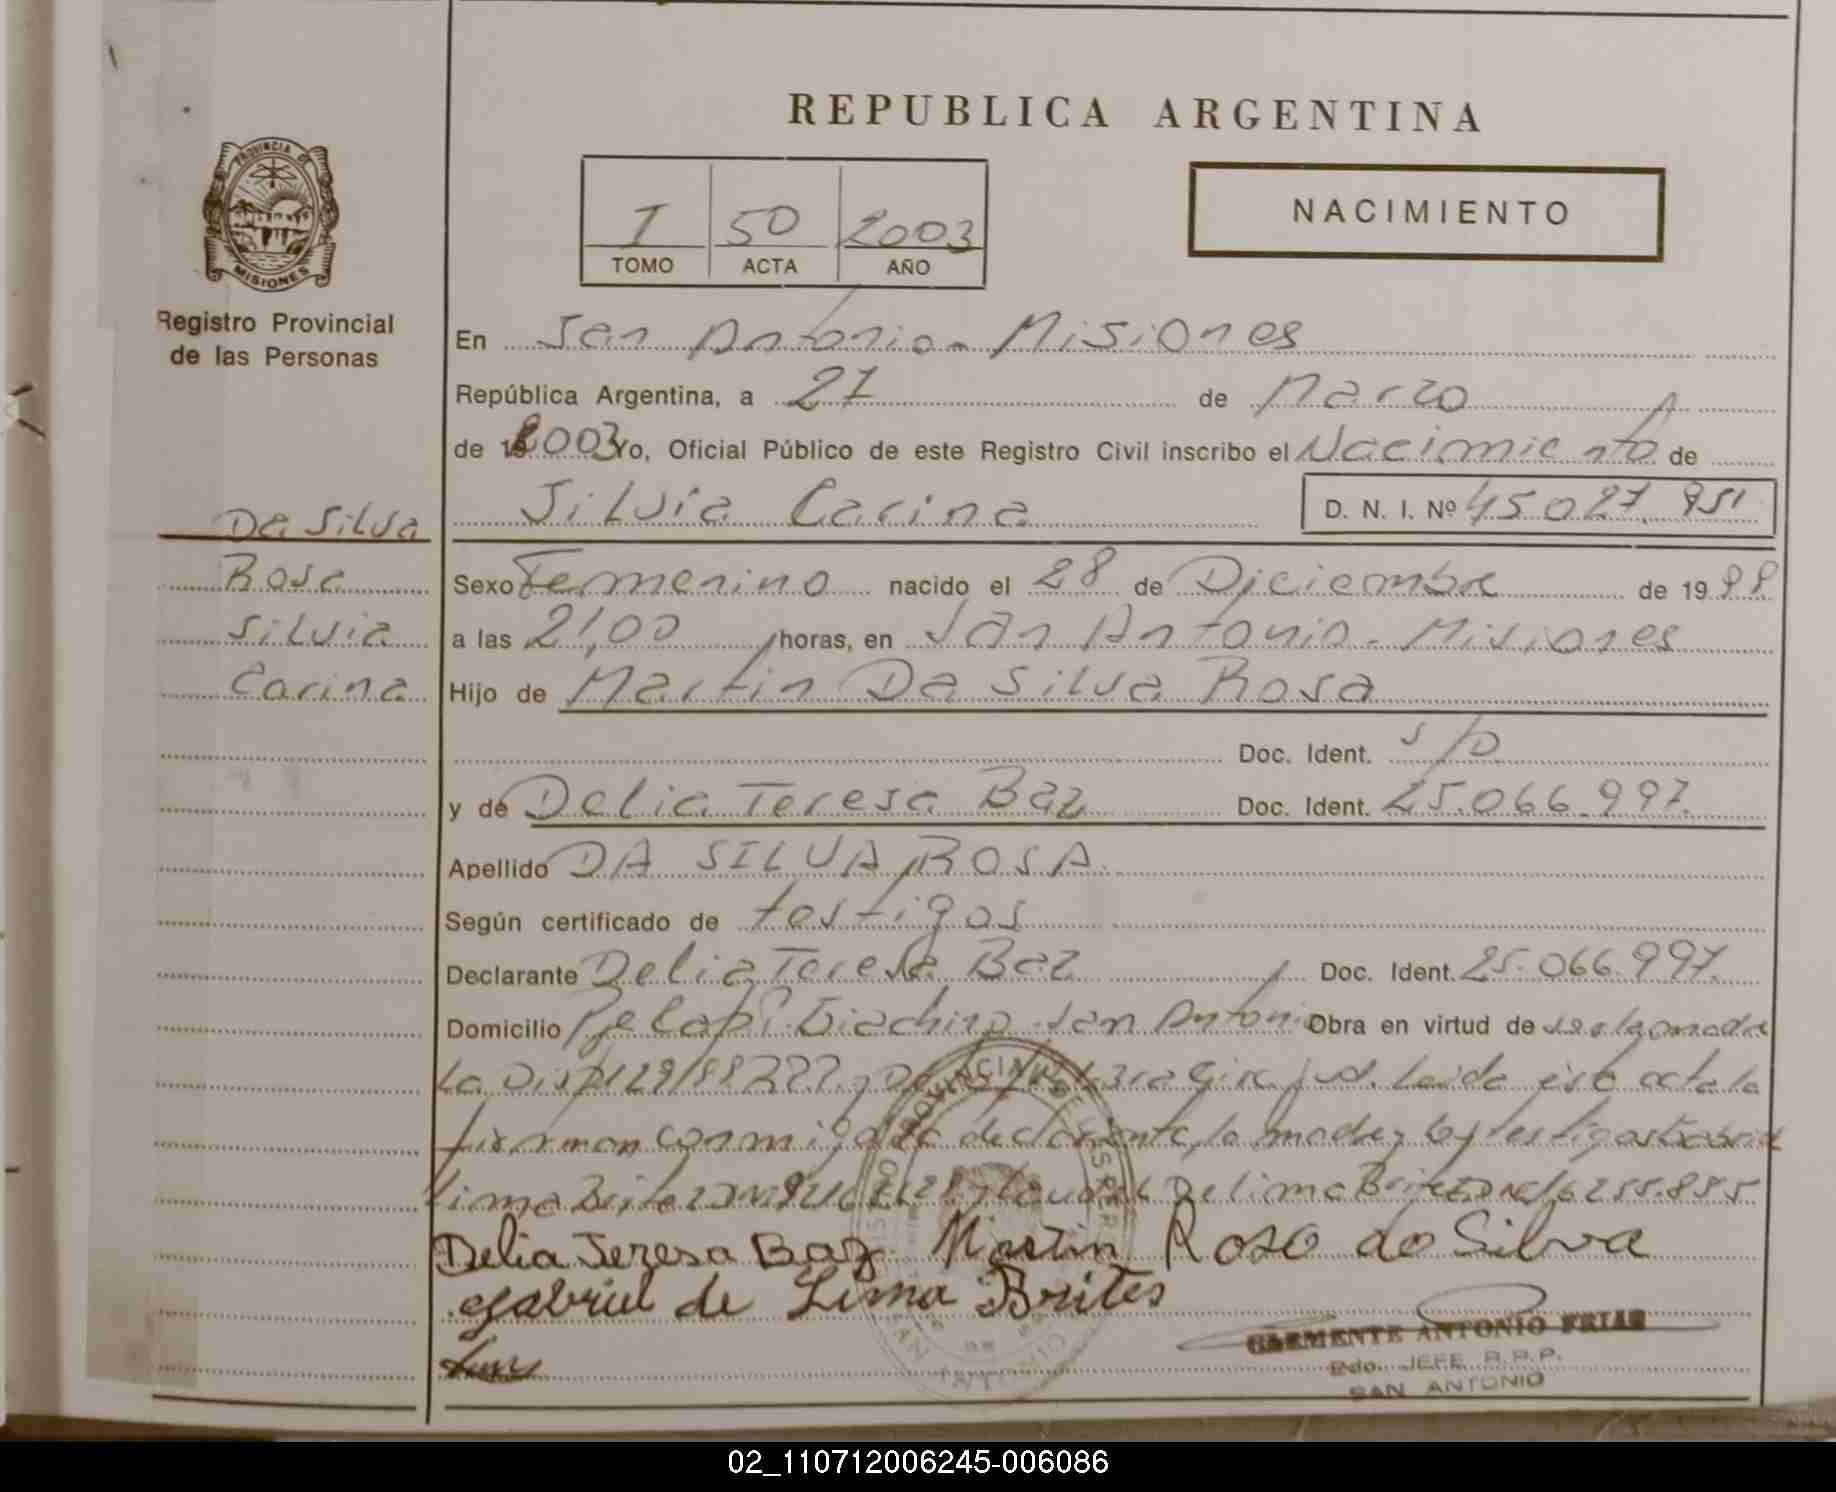 REPUBLICA ARGENTINA
PROVINCIA DE
MISIONES
Registro Provincial
de las Personas
I 50 2003
TOMO ACTA AÑO
NACIMIENTO
En San Antonio - Misiones
República Argentina, a 27 de Marzo
de 2003 Yo, Oficial Público de este Registro Civil inscribo el Nacimiento de
Silvia Carina D. N. I. Nº 45.027.951
Da Silva
Rosa
Silvia
Carina
Sexo Femenino nacido el 28 de Diciembre de 1998
a las 21,00 horas, en San Antonio - Misiones
Hijo de Martin Da Silva Rosa
Doc. Ident. S/D
y de Delia Teresa Baz Doc. Ident. 25.066.997.
Apellido DA SILVA ROSA.
Según certificado de testigos
Declarante Delia Teresa Baz Doc. Ident. 25.066.997.
Domicilio San Antonio Obra en virtud de
La Leida esta acta la
firman conmigo la declarante, la madre y los testigos
Lima De lima 16255.885
Delia Teresa Baz Martin Roso do Silva
Gabriel de Lima Brites
CLEMENTE ANTONIO FRIAS
Edo. JEFE R.P.P.
SAN ANTONIO
02_110712006245-006086